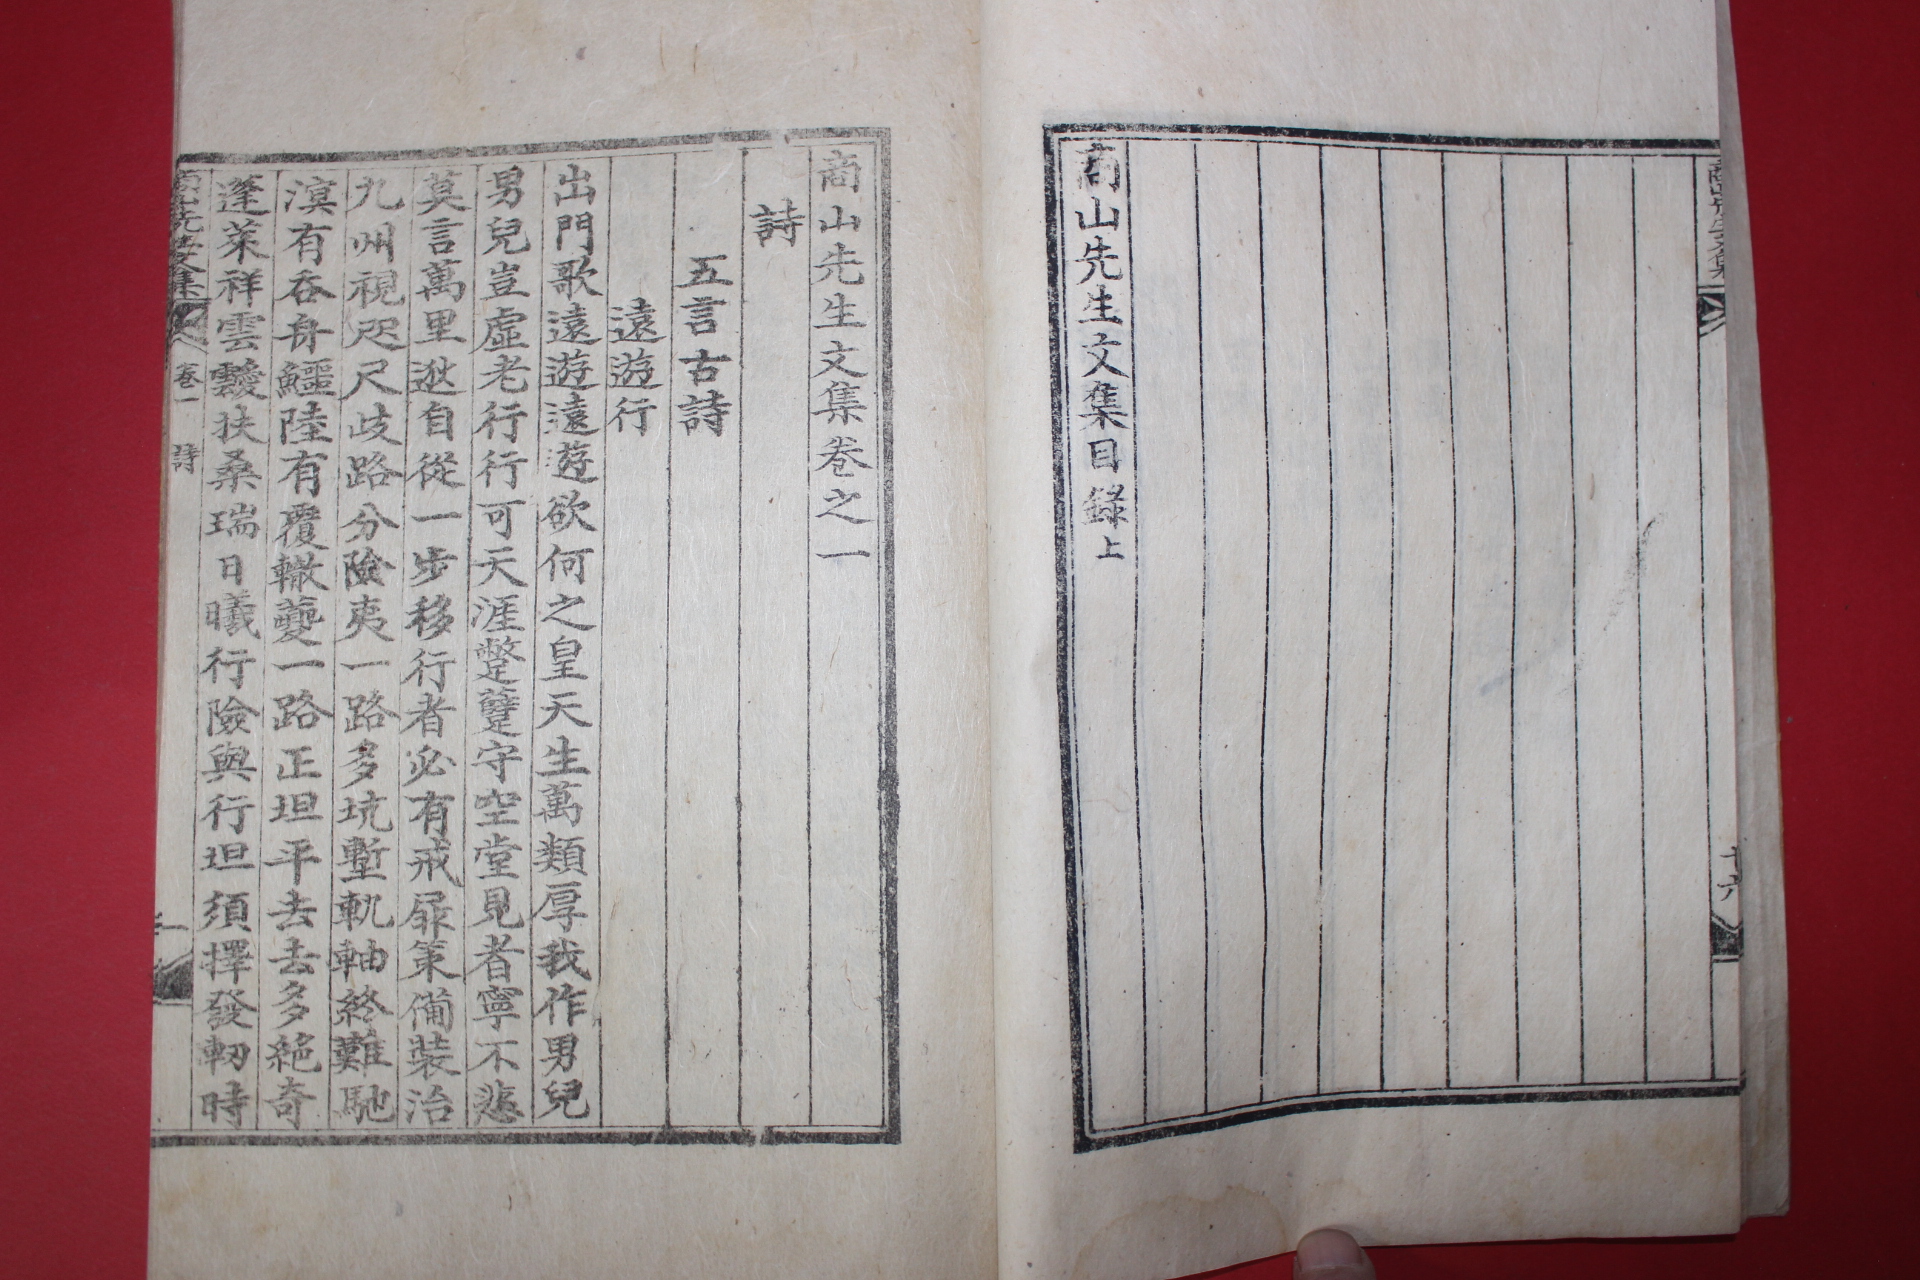 商山先生文集目録上
商山先生文集卷之一
詩
五言古詩
遠遊行
出門歌遠遊遠遊欲何之皇天生萬類厚我作男兒
男兒豈虛老行行可天涯蹩躠守空堂見者寧不悲
莫言萬里逖自從一步移行者必有戒屝策備裝治
九州視咫尺歧路分險夷一路多坑塹軌軸終難馳
溟有呑舟鱷陸有覆轍夔一路正坦平去去多絶奇
蓬萊祥雲靉扶桑瑞日曦行險與行坦須擇發軔時
卷一
詩